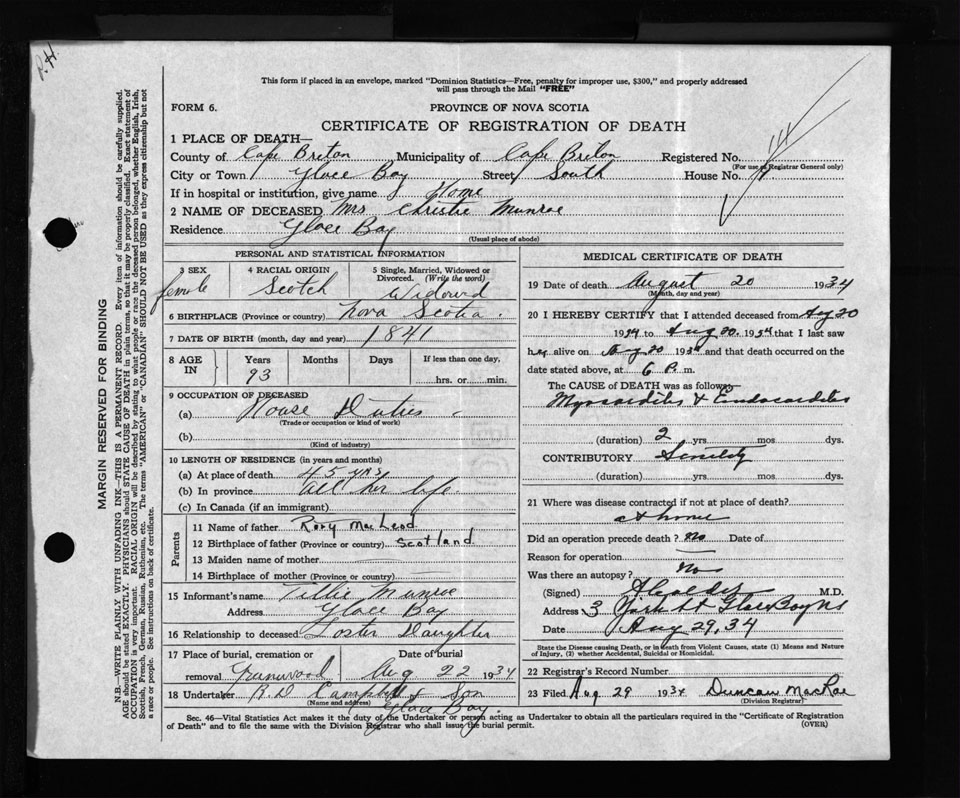 P.H.
This form if placed in an envelope, marked "Dominion Statistics—Free, penalty for improper use, $300," and properly addressed
will pass through the Mail "FREE"
FORM 6.
PROVINCE OF NOVA SCOTIA
CERTIFICATE OF REGISTRATION OF DEATH
1 PLACE OF DEATH—
County of Cape Breton Municipality of Cape Breton Registered No.
(For use of Registrar General only)
City or Town Glace Bay Street South House No.
If in hospital or institution, give name Home
2 NAME OF DECEASED Mrs Christie Munroe
Residence Glace Bay
(Usual place of abode)
PERSONAL AND STATISTICAL INFORMATION
3 SEX 4 RACIAL ORIGIN 5 Single, Married, Widowed or Divorced. (Write the word)
female Scotch Widowed
6 BIRTHPLACE (Province or country) Nova Scotia.
7 DATE OF BIRTH (month, day and year) 1841
8 AGE IN Years Months Days If less than one day,
93 hrs. or min.
9 OCCUPATION OF DECEASED
(a) House Duties
(Trade or occupation or kind of work)
(b)
(Kind of industry)
10 LENGTH OF RESIDENCE (in years and months)
(a) At place of death 45 yrs
(b) In province all her life
(c) In Canada (if an immigrant)
Parents
11 Name of father Rory MacLeod
12 Birthplace of father (Province or country) Scotland
13 Maiden name of mother
14 Birthplace of mother (Province or country)
15 Informant's name Tillie Munroe
Address Glace Bay
16 Relationship to deceased Foster Daughter
17 Place of burial, cremation or removal Date of burial
Greenwood Aug 22 1934
18 Undertaker R.D. Campbell & Son
(Name and address) Glace Bay.
MEDICAL CERTIFICATE OF DEATH
19 Date of death August 20 1934
(Month, day and year)
20 I HEREBY CERTIFY that I attended deceased from Aug 20
1934 to Aug 20. 1934 that I last saw
her alive on Aug 20 1934 and that death occurred on the
date stated above, at 6 P. m.
The CAUSE of DEATH was as follows
Myocarditis & Endocarditis
(duration) 2 yrs. mos. dys.
CONTRIBUTORY Senility
(duration) yrs. mos. dys.
21 Where was disease contracted if not at place of death?
at home
Did an operation precede death? No Date of
Reason for operation
Was there an autopsy? No
(Signed) M.D.
Address 3 York St Glace Bay NS
Date Aug 29, 34
State the Disease causing Death, or in death from Violent Causes, state (1) Means and Nature
of Injury, (2) whether Accidental, Suicidal or Homicidal.
22 Registrar's Record Number
23 Filed Aug 29 1934 Duncan MacRae
(Division Registrar)
Sec. 46—Vital Statistics Act makes it the duty of the Undertaker or person acting as Undertaker to obtain all the particulars required in the "Certificate of Registration
of Death" and to file the same with the Division Registrar who shall issue the burial permit.
(OVER)
MARGIN RESERVED FOR BINDING
N.B.—WRITE PLAINLY WITH UNFADING INK—THIS IS A PERMANENT RECORD. Every item of information should be carefully supplied.
AGE should be stated EXACTLY. PHYSICIANS should STATE CAUSE OF DEATH in plain terms, so that it may be properly classified. Exact statement of
OCCUPATION is very important. RACIAL ORIGIN will be described by stating to what people or race the deceased person belonged, whether English, Irish,
Scottish, French, German, Russian, Ruthenian, etc. The terms "AMERICAN" or "CANADIAN" SHOULD NOT BE USED as they express citizenship but not
a race or people. See instructions on back of certificate.